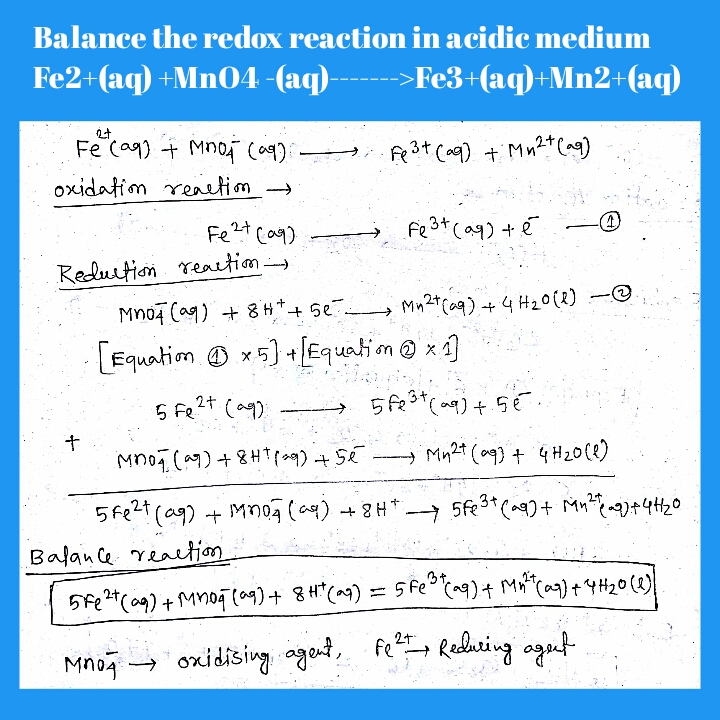 Balance the redox reaction in acidic medium
Fe2+(aq) +MnO4 -(aq)------->Fe3+(aq)+Mn2+(aq)
Fe²⁺(aq) + MnO₄⁻(aq) ⟶ Fe³⁺(aq) + Mn²⁺(aq)
oxidation reaction →
Fe²⁺(aq) ⟶ Fe³⁺(aq) + e⁻ —①
Reduction reaction →
MnO₄⁻(aq) + 8H⁺ + 5e⁻ ⟶ Mn²⁺(aq) + 4H₂O(l) —②
[Equation ① ×5] + [Equation ② ×1]
5Fe²⁺(aq) ⟶ 5Fe³⁺(aq) + 5e⁻
+ MnO₄⁻(aq) + 8H⁺(aq) + 5e⁻ ⟶ Mn²⁺(aq) + 4H₂O(l)
5Fe²⁺(aq) + MnO₄⁻(aq) + 8H⁺ → 5Fe³⁺(aq) + Mn²⁺(aq) + 4H₂O
Balance reaction
5Fe²⁺(aq) + MnO₄⁻(aq) + 8H⁺(aq) = 5Fe³⁺(aq) + Mn²⁺(aq) + 4H₂O(l)
MnO₄⁻ → oxidising agent, Fe²⁺ → Reducing agent